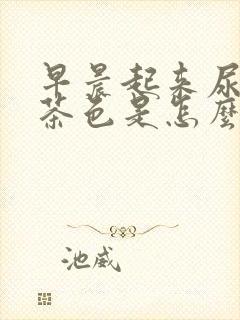 早晨起来尿
茶色是怎麼
池威